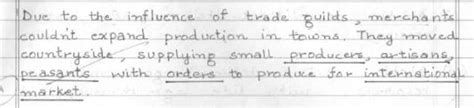 Due to the influence of trade guilds, merchants
couldnt expand production in towns. They moved
countryside, supplying small producers, artisans,
peasants with orders to produce for international
market.